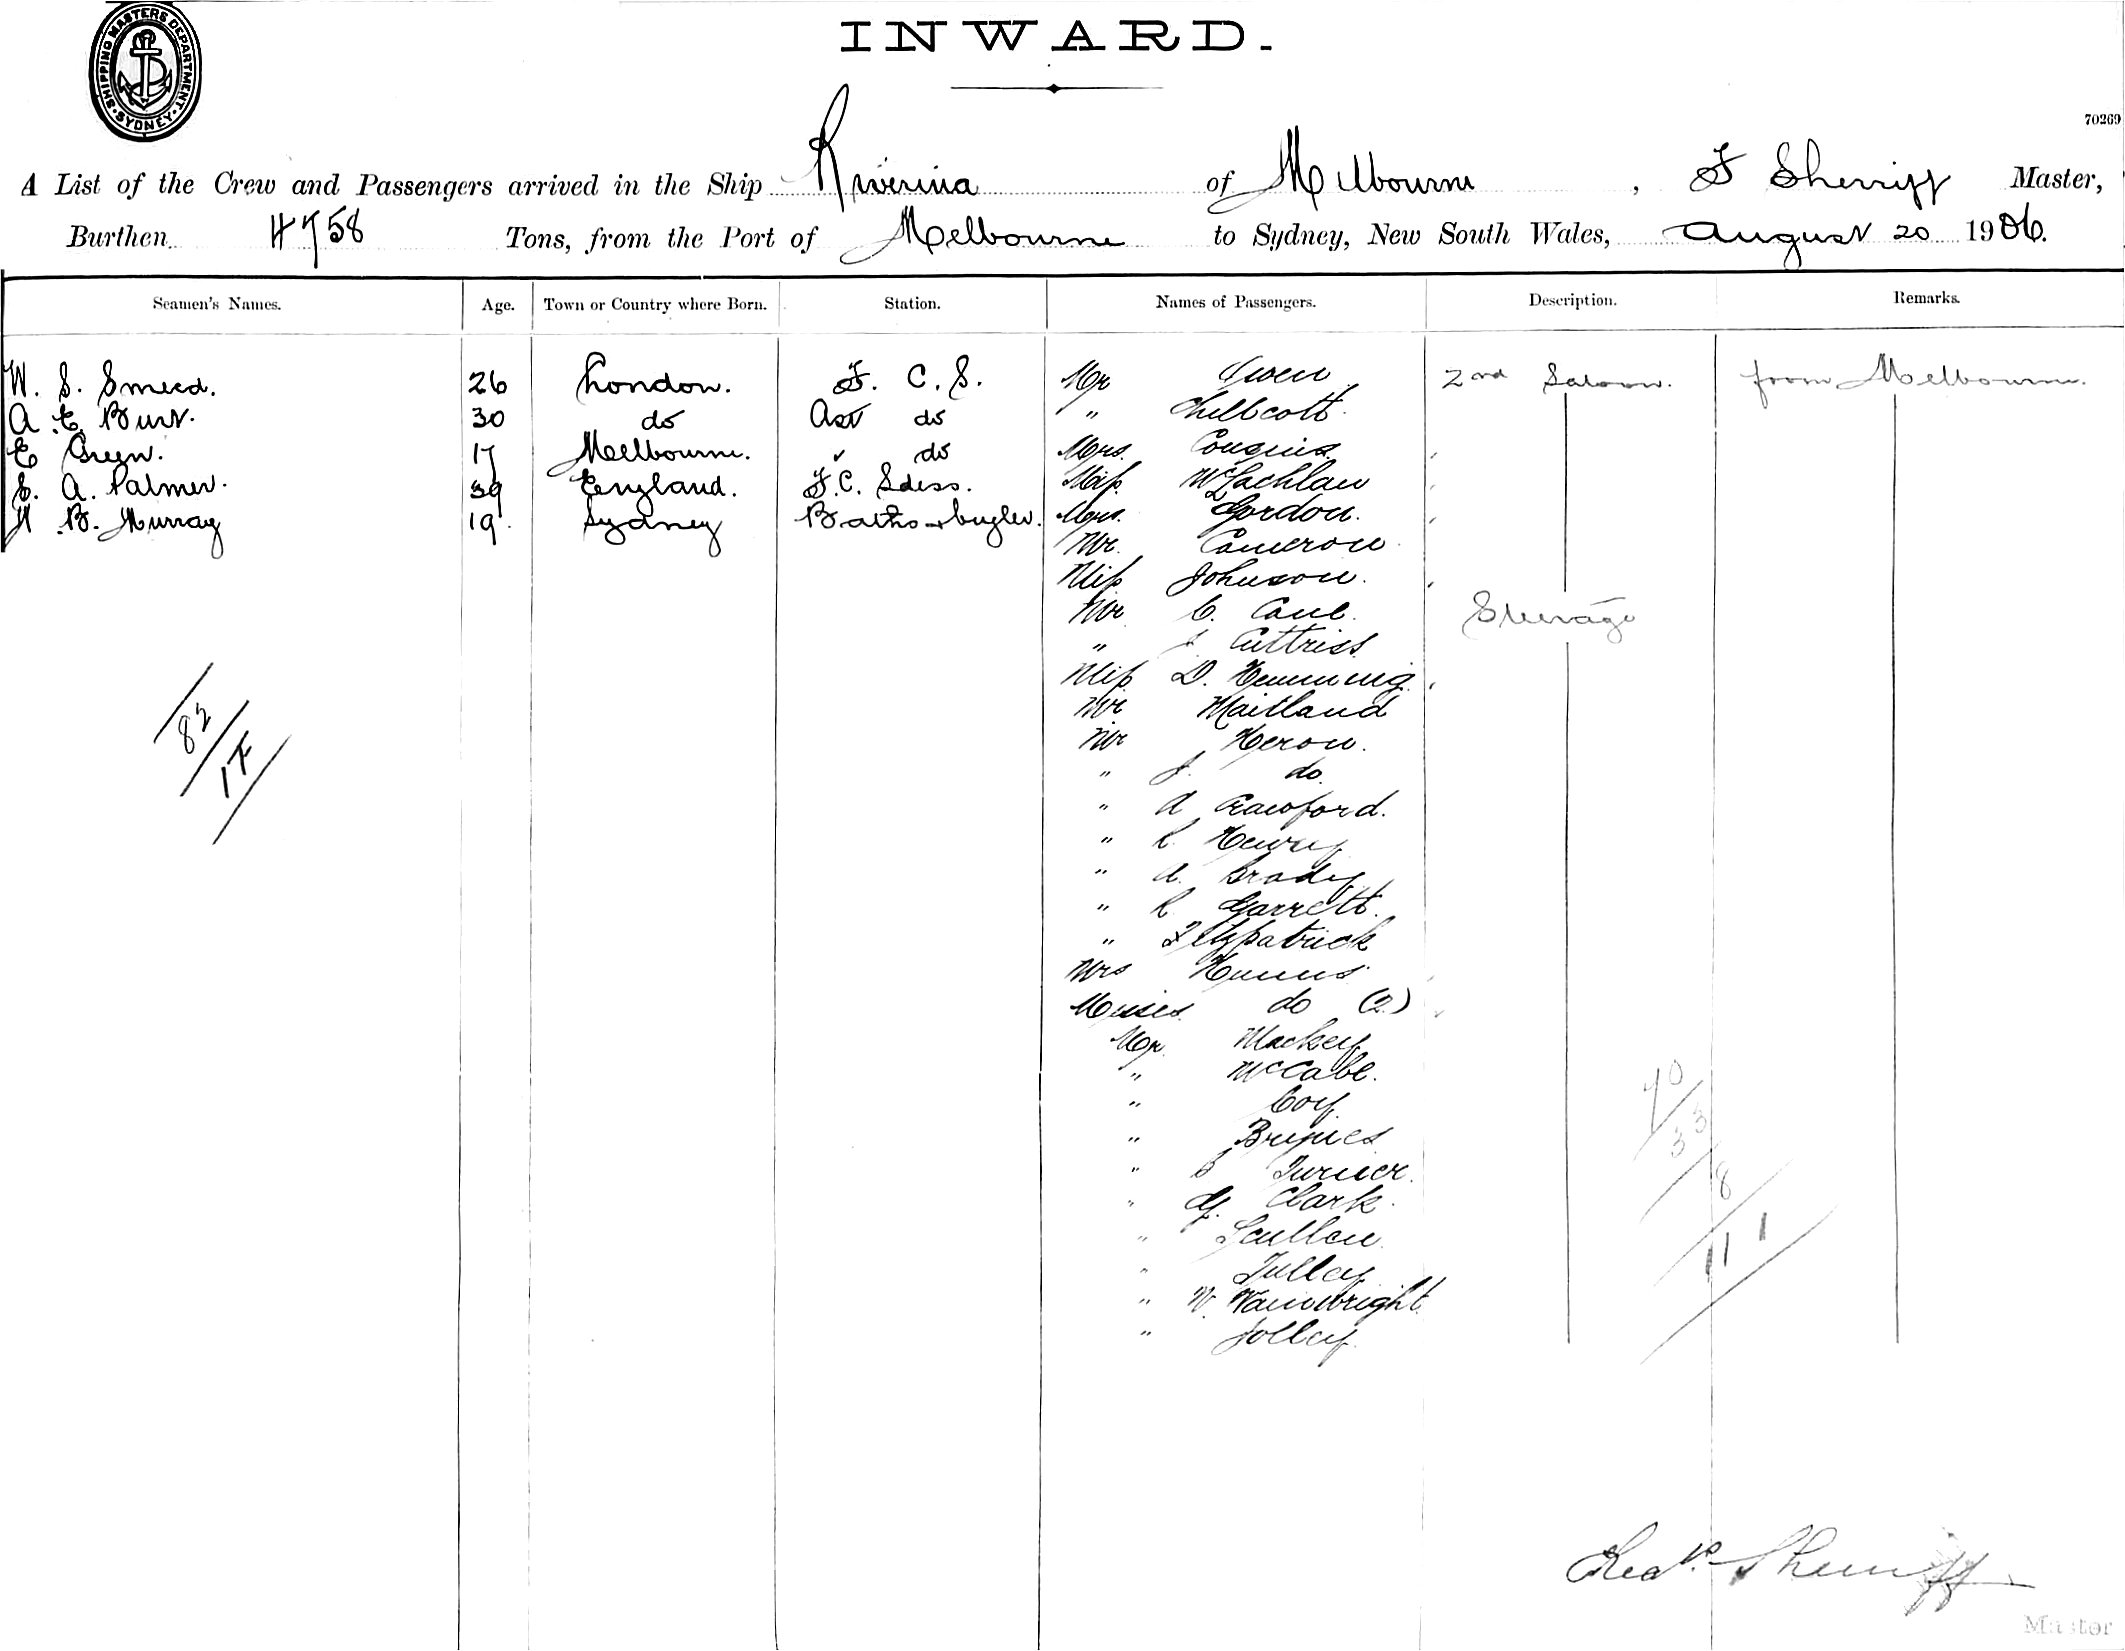 SHIPPING MASTERS DEPARTMENT. SYDNEY.
INWARD.
70269
A List of the Crew and Passengers arrived in the Ship Riverina of Melbourne, F Sherriff Master,
Burthen 4758 Tons, from the Port of Melbourne to Sydney, New South Wales, August 20 1906.
Seamen's Names. Age. Town or Country where Born. Station. Names of Passengers. Description. Remarks.
W. S. Smeed. 26 London. F. C. S. Mr Owen 2nd Saloon. from Melbourne.
A. E. Burt. 30 do Ast do " Chellcott.
E Green. 17 Melbourne. " do Mrs. Couzins.
E. A. Palmer. 39 England. F.C. Sdess. Miss McLachlan
H B. Murray 19. Sydney Baths & bugler. Mrs. Gordon.
Mr. Cameron
Miss Johnson.
Mr C. Caul. Steerage
" J Cuttriss.
Miss D. Hemming.
Mr Maitland
Mr Heron.
" J. do.
" A Crawford.
" R. Henry
" A. Brady
" R. Garrett.
" Fitzpatrick
Mrs
Misses do (2)
Mr. Mackey
" McCabe.
" Coy.
"
" Turner.
" G. Clark.
" Scullen.
" Tulley
" W. Wainwright.
" Jolley.
82
17
70
33
8
111
Fredk. Sherriff
Master